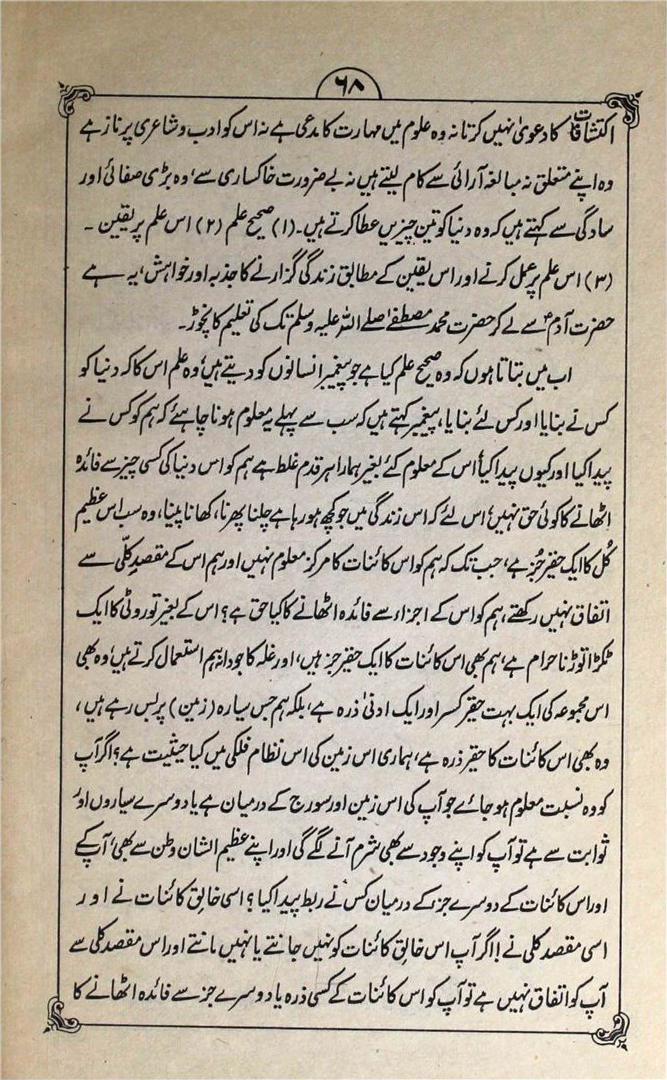 ۶۸
اکتشافات کا دعویٰ نہیں کرتا نہ وہ علوم میں مہارت کا مدعی ہے نہ اس کو ادب و شاعری پر ناز ہے
وہ اپنے متعلق نہ مبالغہ آرائی سے کام لیتے ہیں نہ بے ضرورت خاکساری سے، وہ بڑی صفائی اور
سادگی سے کہتے ہیں کہ وہ دنیا کو تین چیزیں عطا کرتے ہیں۔ (۱) صحیح علم (۲) اس علم پر یقین ۔
(۳) اس علم پر عمل کرنے اور اس یقین کے مطابق زندگی گزارنے کا جذبہ اور خواہش، یہ ہے
حضرت آدمؑ سے لے کر حضرت محمد مصطفےٰ صلے اللہ علیہ وسلم تک کی تعلیم کا نچوڑ۔
اب میں بتاتا ہوں کہ وہ صحیح علم کیا ہے جو پیغمبر انسانوں کو دیتے ہیں، وہ علم اس کا کہ دنیا کو
کس نے بنایا اور کس لئے بنایا، پیغمبر کہتے ہیں کہ سب سے پہلے یہ معلوم ہونا چاہئے کہ ہم کو کس نے
پیدا کیا اور کیوں پیدا کیا، اس کے معلوم کئے بغیر ہمارا ہر قدم غلط ہے ہم کو اس دنیا کی کسی چیز سے فائدہ
اٹھانے کا کوئی حق نہیں، اس لئے کہ اس زندگی میں جو کچھ ہو رہا ہے چلنا پھرنا، کھانا پینا، وہ سب اس عظیم
کُل کا ایک حقیر جُز ہے، جب تک کہ ہم کو اس کائنات کا مرکز معلوم نہیں اور ہم اس کے مقصدِ کلّی سے
اتفاق نہیں رکھتے، ہم کو اس کے اجزاء سے فائدہ اٹھانے کا کیا حق ہے؟ اس کے بغیر تو روٹی کا ایک
ٹکڑا توڑنا حرام ہے، ہم بھی اس کائنات کا ایک حقیر جز ہیں، اور غلہ کا جو دانہ ہم استعمال کرتے ہیں، وہ بھی
اس مجموعہ کی ایک بہت حقیر کسر اور ایک ادنیٰ ذرہ ہے، بلکہ ہم جس سیارہ (زمین) پر بس رہے ہیں،
وہ بھی اس کائنات کا حقیر ذرہ ہے، ہماری اس زمین کی اس نظام فلکی میں کیا حیثیت ہے؟ اگر آپ
کو وہ نسبت معلوم ہو جائے جو آپ کی اس زمین اور سورج کے درمیان ہے یا دوسرے سیاروں اور
ثوابت سے ہے تو آپ کو اپنے وجود سے بھی شرم آنے لگے گی اور اپنے عظیم الشان وطن سے بھی، آپ کے
اور اس کائنات کے دوسرے جز کے درمیان کس نے ربط پیدا کیا؟ اسی خالق کائنات نے اور
اسی مقصد کلی نے! اگر آپ اس خالق کائنات کو نہیں جانتے یا نہیں مانتے اور اس مقصد کلی سے
آپ کو اتفاق نہیں ہے تو آپ کو اس کائنات کے کسی ذرہ یا دوسرے جز سے فائدہ اٹھانے کا